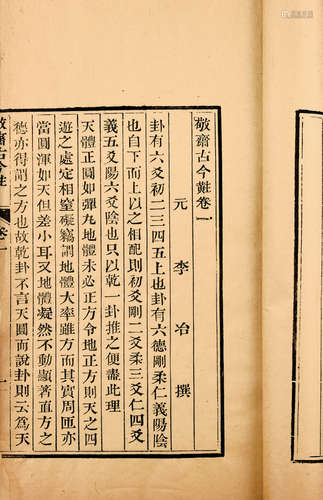 敬齋古今黈卷一
元 李 冶 撰
卦有六爻初二三四五上也卦有六德剛柔仁義陽陰
也自下而上之相配則初爻剛二爻柔三爻仁四爻
義五爻陽六爻陰也只以乾一卦推之便盡此理
天體正圓如彈丸地體未必正方令地正方則天之四
遊之處定相窒礙竊謂地體大率雖方而其實周匝亦
當圓渾如天但差小耳又地體凝然不動顯著直方之
德亦得謂之方也故乾卦不言天圓而說卦則云為天
敬齋古今黈 卷一
一